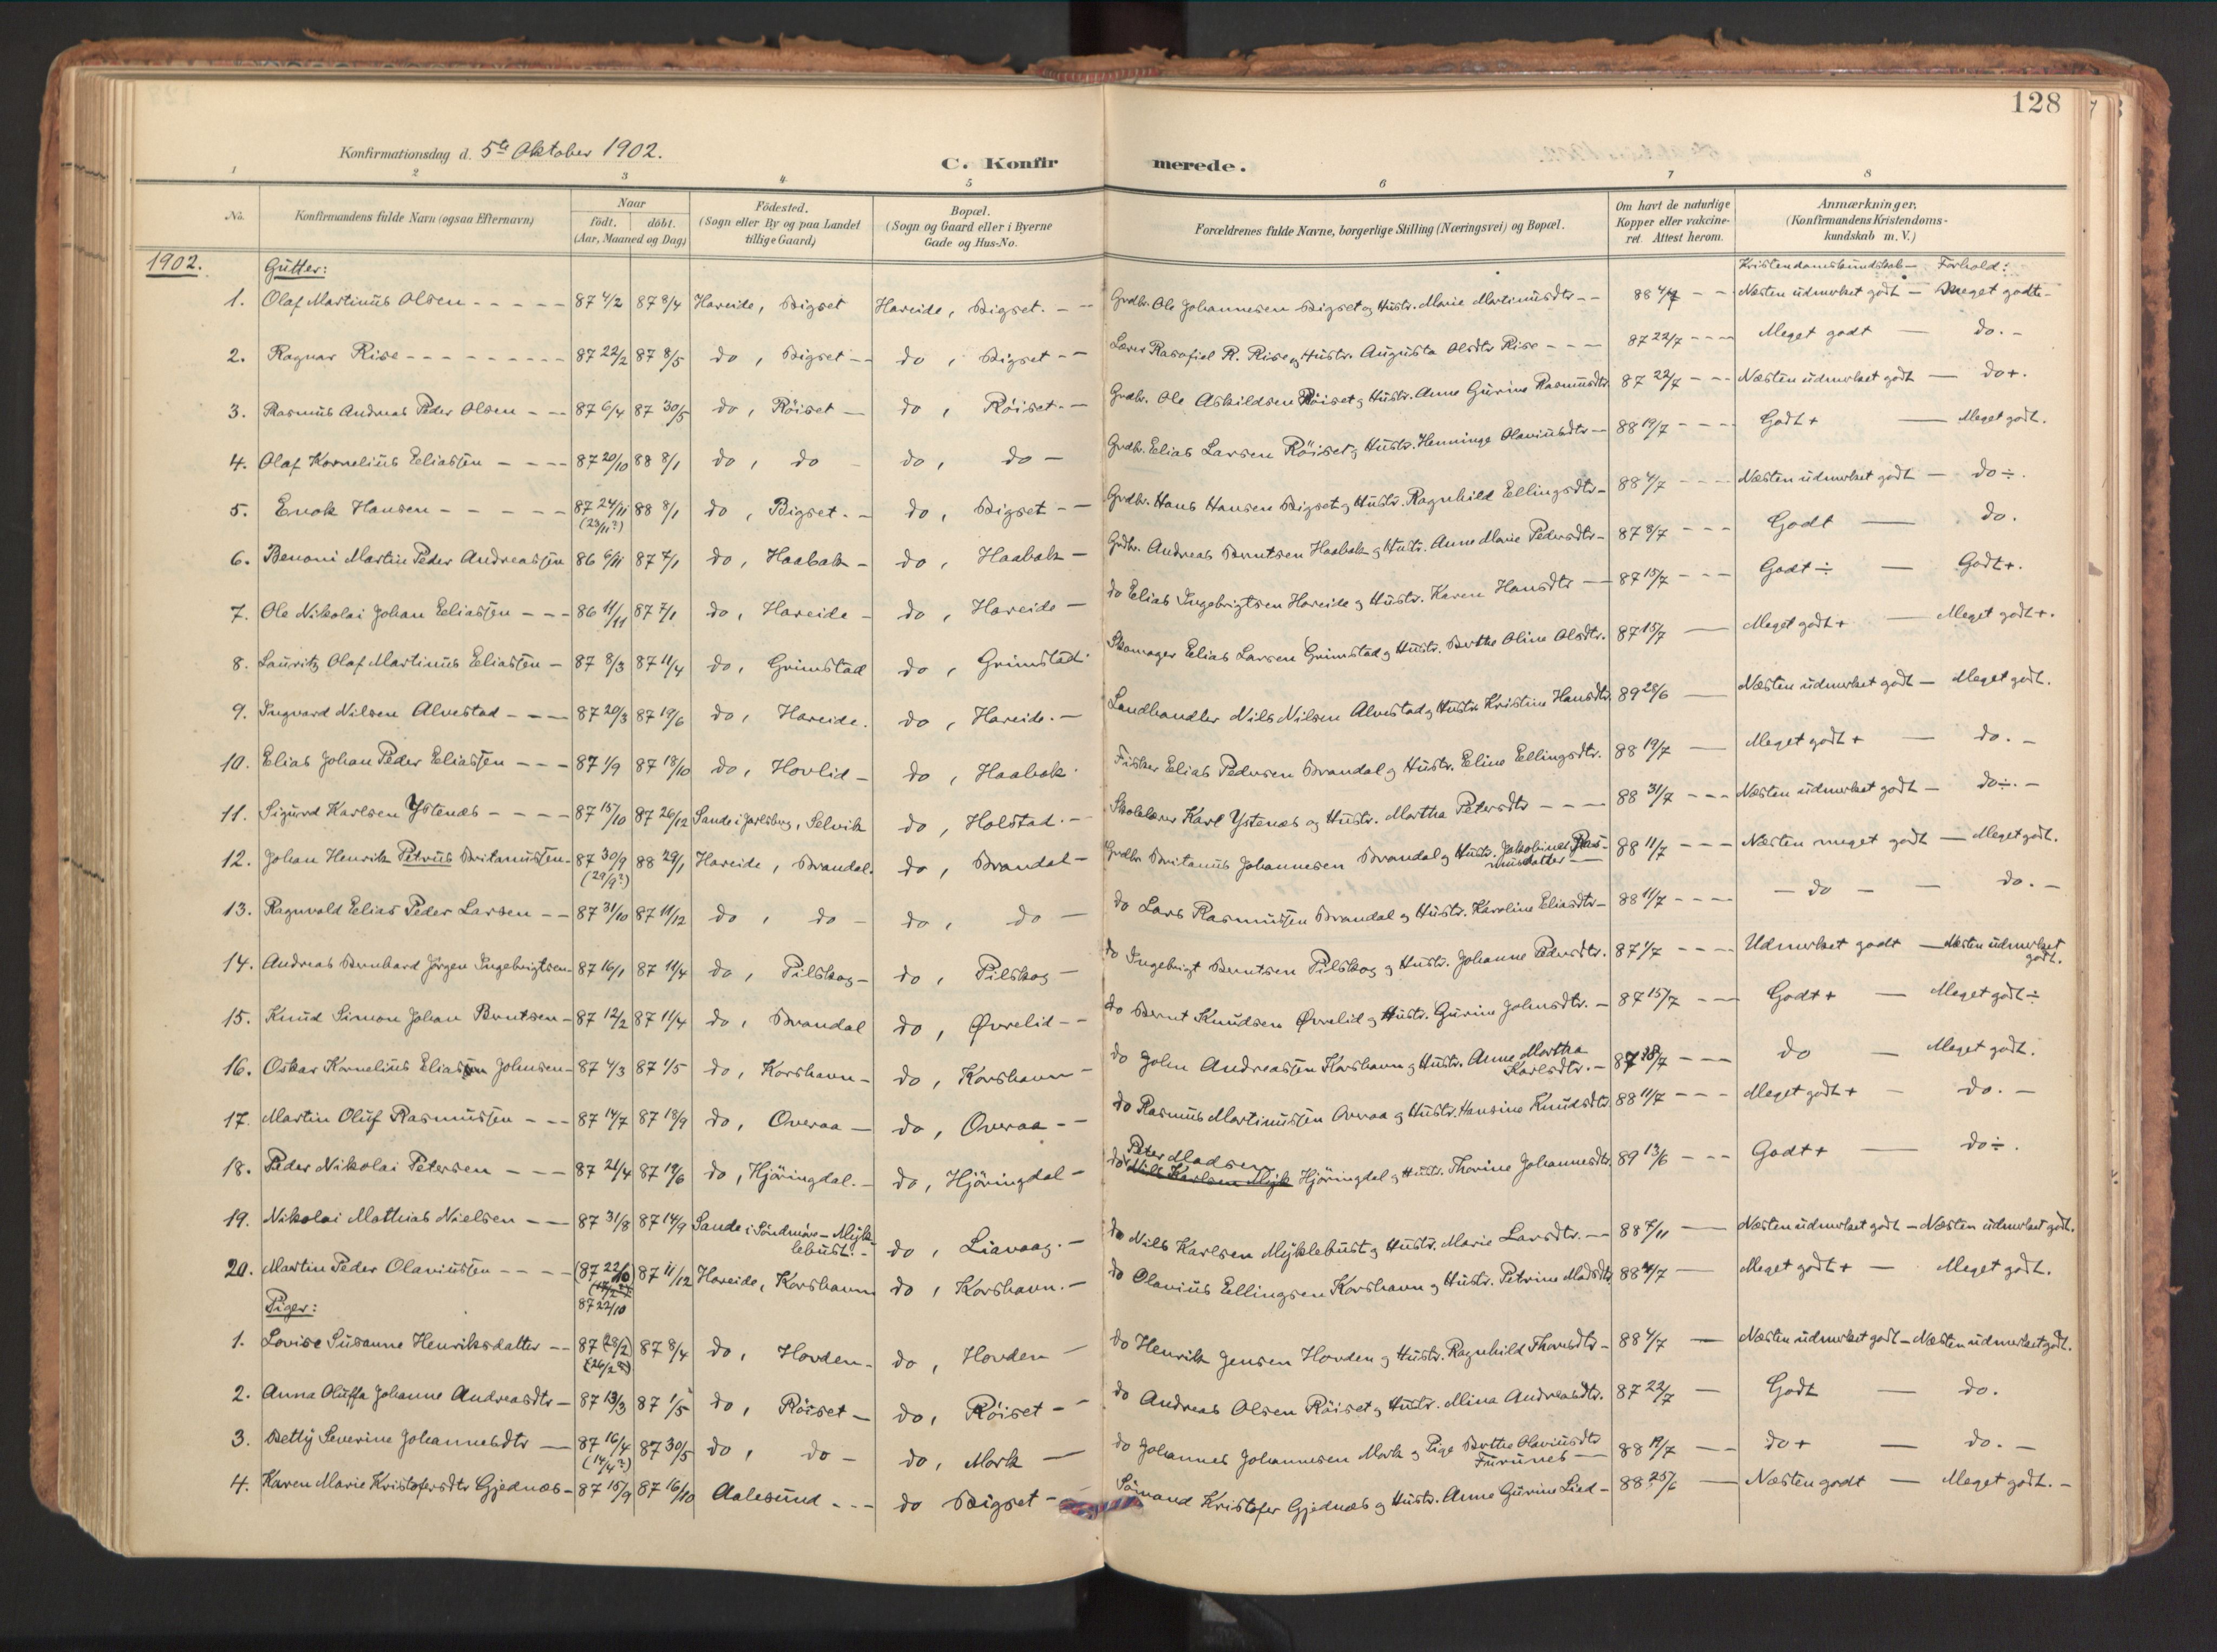 128
Konfirmationsdag d. 5te Oktober 1902.
C. Konfirmerede.
1 2 3 4 5 6 7 8
No. Konfirmandens fulde Navn (ogsaa Efternavn) Naar födt. döbt. (Aar, Maaned og Dag) Födested. (Sogn eller By og paa Landet tillige Gaard) Bopæl. (Sogn og Gaard eller i Byerne Gade og Hus-No. Forældrenes fulde Navne, borgerlige Stilling (Næringsvei) og Bopæl. Om havt de naturlige Kopper eller vakcineret. Attest herom. Anmærkninger. (Konfirmandens Kristendomskundskab m. V.)
1902. Gutter: Kristendomskundskab — Forhold:
1. Olaf Martinus Olsen - - - - - 87 4/2 87 8/4 Hareide, Bigset Hareide, Bigset. - - Grdbr. Ole Johannesen Bigset og Hustr. Marie Martinusdtr - - 88 4/7 - - Næsten udmerket godt — Meget godt -
2. Ragnar Rise - - - - - - - - - 87 22/2 87 8/5 do, Bigset - - do, Bigset - - Lærer Rasofiel R. Rise og Hustr. Augusta Olsdtr Rise - - - 87 22/7 - - - Meget godt — do. -
3. Rasmus Andreas Peder Olsen - - 87 6/4 87 30/5 do, Röiset — do, Röiset. - Grdbr. Ole Askildsen Röiset og Hustr. Anne Gurine Rasmusdtr. 87 22/7 - - - Næsten udmerket godt — do +.
4. Olaf Kornelius Eeliassen - - - - 87 20/10 88 8/1 do, do - do, do — Grdbr. Eelias Larsen Röiset og Hustr. Henninge Olaviusdtr — 88 19/7 - - - Godt + — Meget godt.
5. Enok Hansen - - - - - 87 24/11 88 8/1 do, Bigset. - do, Bigset - - Grdbr. Hans Hansen Bigset og Hustr. Ragnhild Ellingsdtr - 88 4/7 - - - Næsten udmerket godt — do ÷.
(23/11?)
6. Benoni Martin Peder Andreassen 86 6/11 87 7/1 do, Haabak - do, Haabak — Grdbr. Andreas Berntsen Haabak og Hustr. Anne Marie Pedersdtr - 87 8/7 - - - Godt — do.
7. Ole Nikolai Johan Eeliassen - - - 86 11/11 87 7/1 do, Hareide - do, Hareide — do Eelias Ingebrigtsen Hareide og Hustr. Karen Hansdtr — 87 15/7 - - - Godt ÷ — Godt +.
8. Lauritz Olaf Martinus Eeliassen - 87 8/3 87 11/4 do, Grimstad do, Grimstad. Skomager Eelias Larsen Grimstad og Hustr. Berthe Oline Olsdtr. 87 15/7 — Meget godt + — Meget godt +.
9. Ingvard Nilsen Alvestad - - - 87 20/3 87 19/6 do, Hareide. do, Hareide. - Landhandler Nils Nilsen Alvestad og Hustr Kristine Hansdtr 89 28/6 — Næsten udmerket godt — Meget godt.
10. Elias Johan Peder Eliassen - - - 87 1/9 87 18/10 do, Hovlid - do, Haabak. Fisker Elias Pedersen Brandal og Hustr. Eline Ellingsdtr. 88 19/7 — Meget godt + — do. -
11. Sigurd Karlsen Ystenæs - - - - 87 15/10 87 26/12 Sande i Jarlsberg, Selvik do, Holstad. - Skolelærer Karl Ystenæs og Hustr. Martha Petersdtr - - - 88 31/7 - - - Næsten udmerket godt - do ÷. -
12. Johan Henrik Petrus Britanussen - 87 30/9 88 29/1 Hareide, Brandal. do, Brandal - Grdbr Britanus Johannesen Brandal og Hustr. Jakobine Rasmusdatter — 88 11/7 - - - Næsten meget godt — Meget godt.
(29/9?)
13. Ragnvald Eelias Peder Larsen - - 87 31/10 87 11/12 do, do - do, do — do Lars Rasmussen Brandal og Hustr. Karoline Eliasdtr - 88 11/7 - - - - do - — do. -
14. Andreas Bernhard Jörgen Ingebrigtsen - 87 16/1 87 11/4 do, Pilskog - do, Pilskog — do Ingebrigt Berntsen Pilskog og Hustr. Johanne Pedersdtr. 87 1/7 - - - Udmerket godt — Næsten udmerket godt.
15. Knud Simon Johan Berntsen - 87 12/2 87 11/4 do, Brandal do, Øvrelid - - do Bernt Knudsen Øvrelid og Hustr. Gurine Johnsdtr. - 87 15/7 - - Godt + — Meget godt ÷
16. Oskar Kornelius Elias Johnsen - 87 4/3 87 1/5 do, Korshavn - do, Korshavn - do John Andreassen Korshavn og Hustr. Anne Martha Karlsdtr. - 87 28/7 - - - do — Meget godt.
17. Martin Oluf Rasmussen - - - 87 14/7 87 18/9 do, Overaa — do, Overaa - - do Rasmus Martinussen Overaa og Hustr. Hansine Knudsdtr 88 11/7 - - - Meget godt + - do. -
18. Peder Nikolai Petersen - - - 87 21/4 87 19/6 do, Hjöringdal. - do, Hjöringdal - do Peter Madsen Nils Karlsen Myk Hjöringdal og Hustr. Thorine Johannesdtr. 89 13/6 - - - Godt + — do ÷.
19. Nikolai Mathias Nielsen - - - 87 31/8 87 14/9 Sande i Söndmör - Myklebust. - do, Liavaag. - do Nils Karlsen Myklebust og Hustr. Marie Larsdtr. - 88 7/11 — Næsten udmerket godt - Næsten udmerket godt.
20. Martin Peder Olaviussen - - - - (87 22/10) 87 11/12 Hareide, Korshavn do, Korshavn. - do Olavius Ellingsen Korshavn og Hustr. Petrine Madsdtr 88 4/7 — Meget godt + — Meget godt.
87 22/10
Piger:
1. Lovise Susanne Henriksdatter - - 87 (28/2) 87 8/4 do, Hovden - do, Hovden — do Henrik Jensen Hovden og Hustr. Ragnhild Thorsdtr - 88 4/7 — Næsten udmerket godt - Næsten udmerket godt.
(26/2?)
2. Anna Oluffa Johanne Andreasdtr - 87 13/3 87 1/5 do, Röiset - do, Röiset - - do Andreas Olsen Röiset og Hustr. Mina Andreasdtr. 87 22/7 — Godt — do.
3. Betty Severine Johannesdtr — 87 16/4 87 30/5 do, do - do, Mork — do Johannes Johannesen Mork og Pige Berthe Olaviusdtr Furunes — 88 19/7 - - do + — do. -
(14/4?)
4. Karen Marie Kristofersdtr Gjednæs - 87 15/9 87 16/10 Aalesund - - - do Bigset - Sömand Kristofer Gjednæs og Hustr. Anne Gurine Lied - 88 25/6 — Næsten godt — Meget godt. -